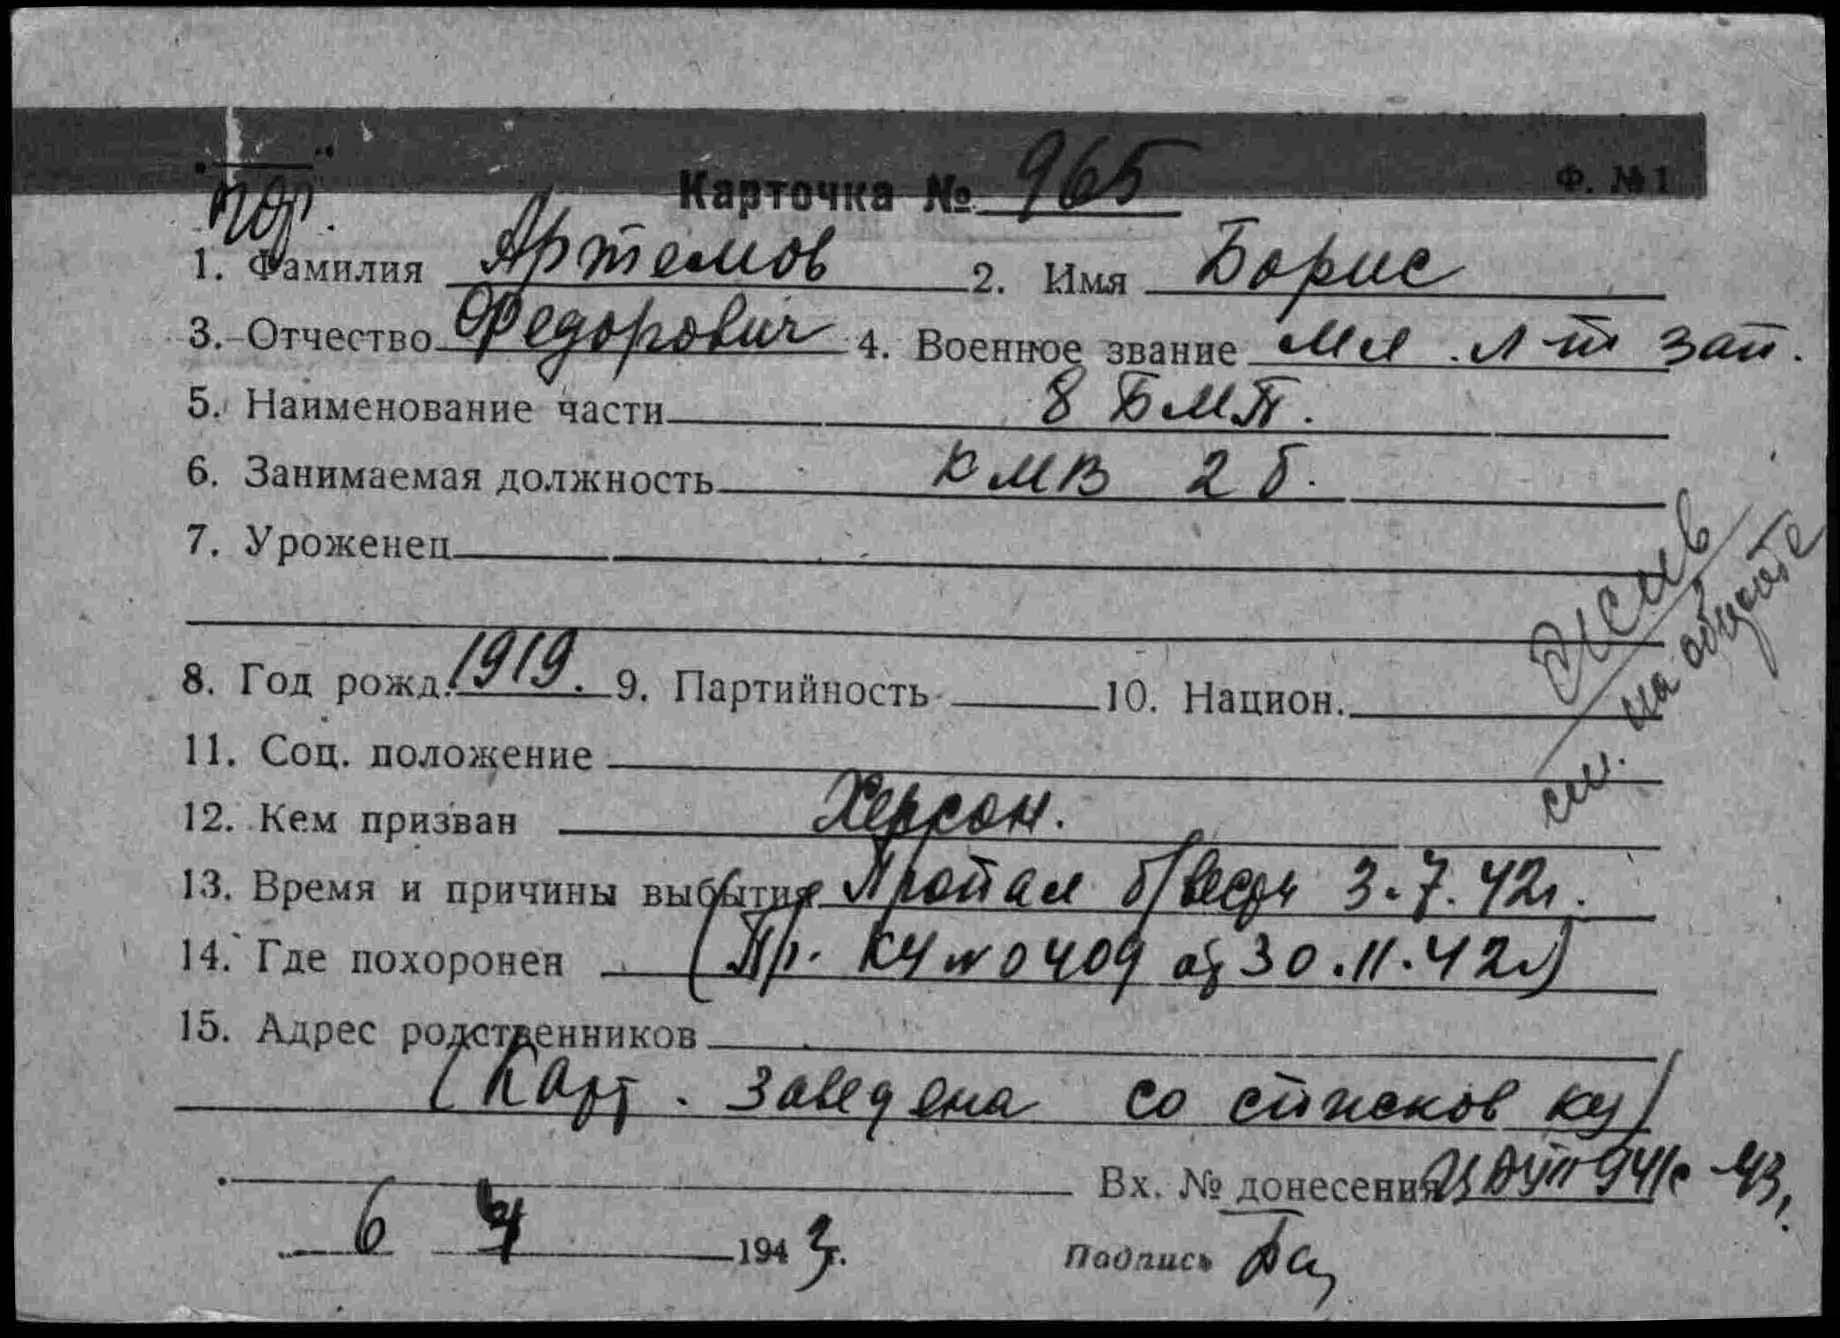 Ф. № 1
Карточка № 965
1. Фамилия Артемов 2. Имя Борис
3. Отчество Федорович 4. Военное звание Мл. л-т зап.
5. Наименование части 8 БМП.
6. Занимаемая должность КМВ 2 б.
7. Уроженец
8. Год рожд. 1919. 9. Партийность 10. Национ.
11. Соц. положение
12. Кем призван Херсон.
13. Время и причины выбытия Пропал б/вести 3.7.42г.
14. Где похоронен (Пр. КЧ № 0409 от 30.11.42г)
15. Адрес родственников
(Карт. заведена со списков КЧ)
Вх. № донесения 941с 43г.
6 4 1943г.
Подпись
Жив
см. на обороте